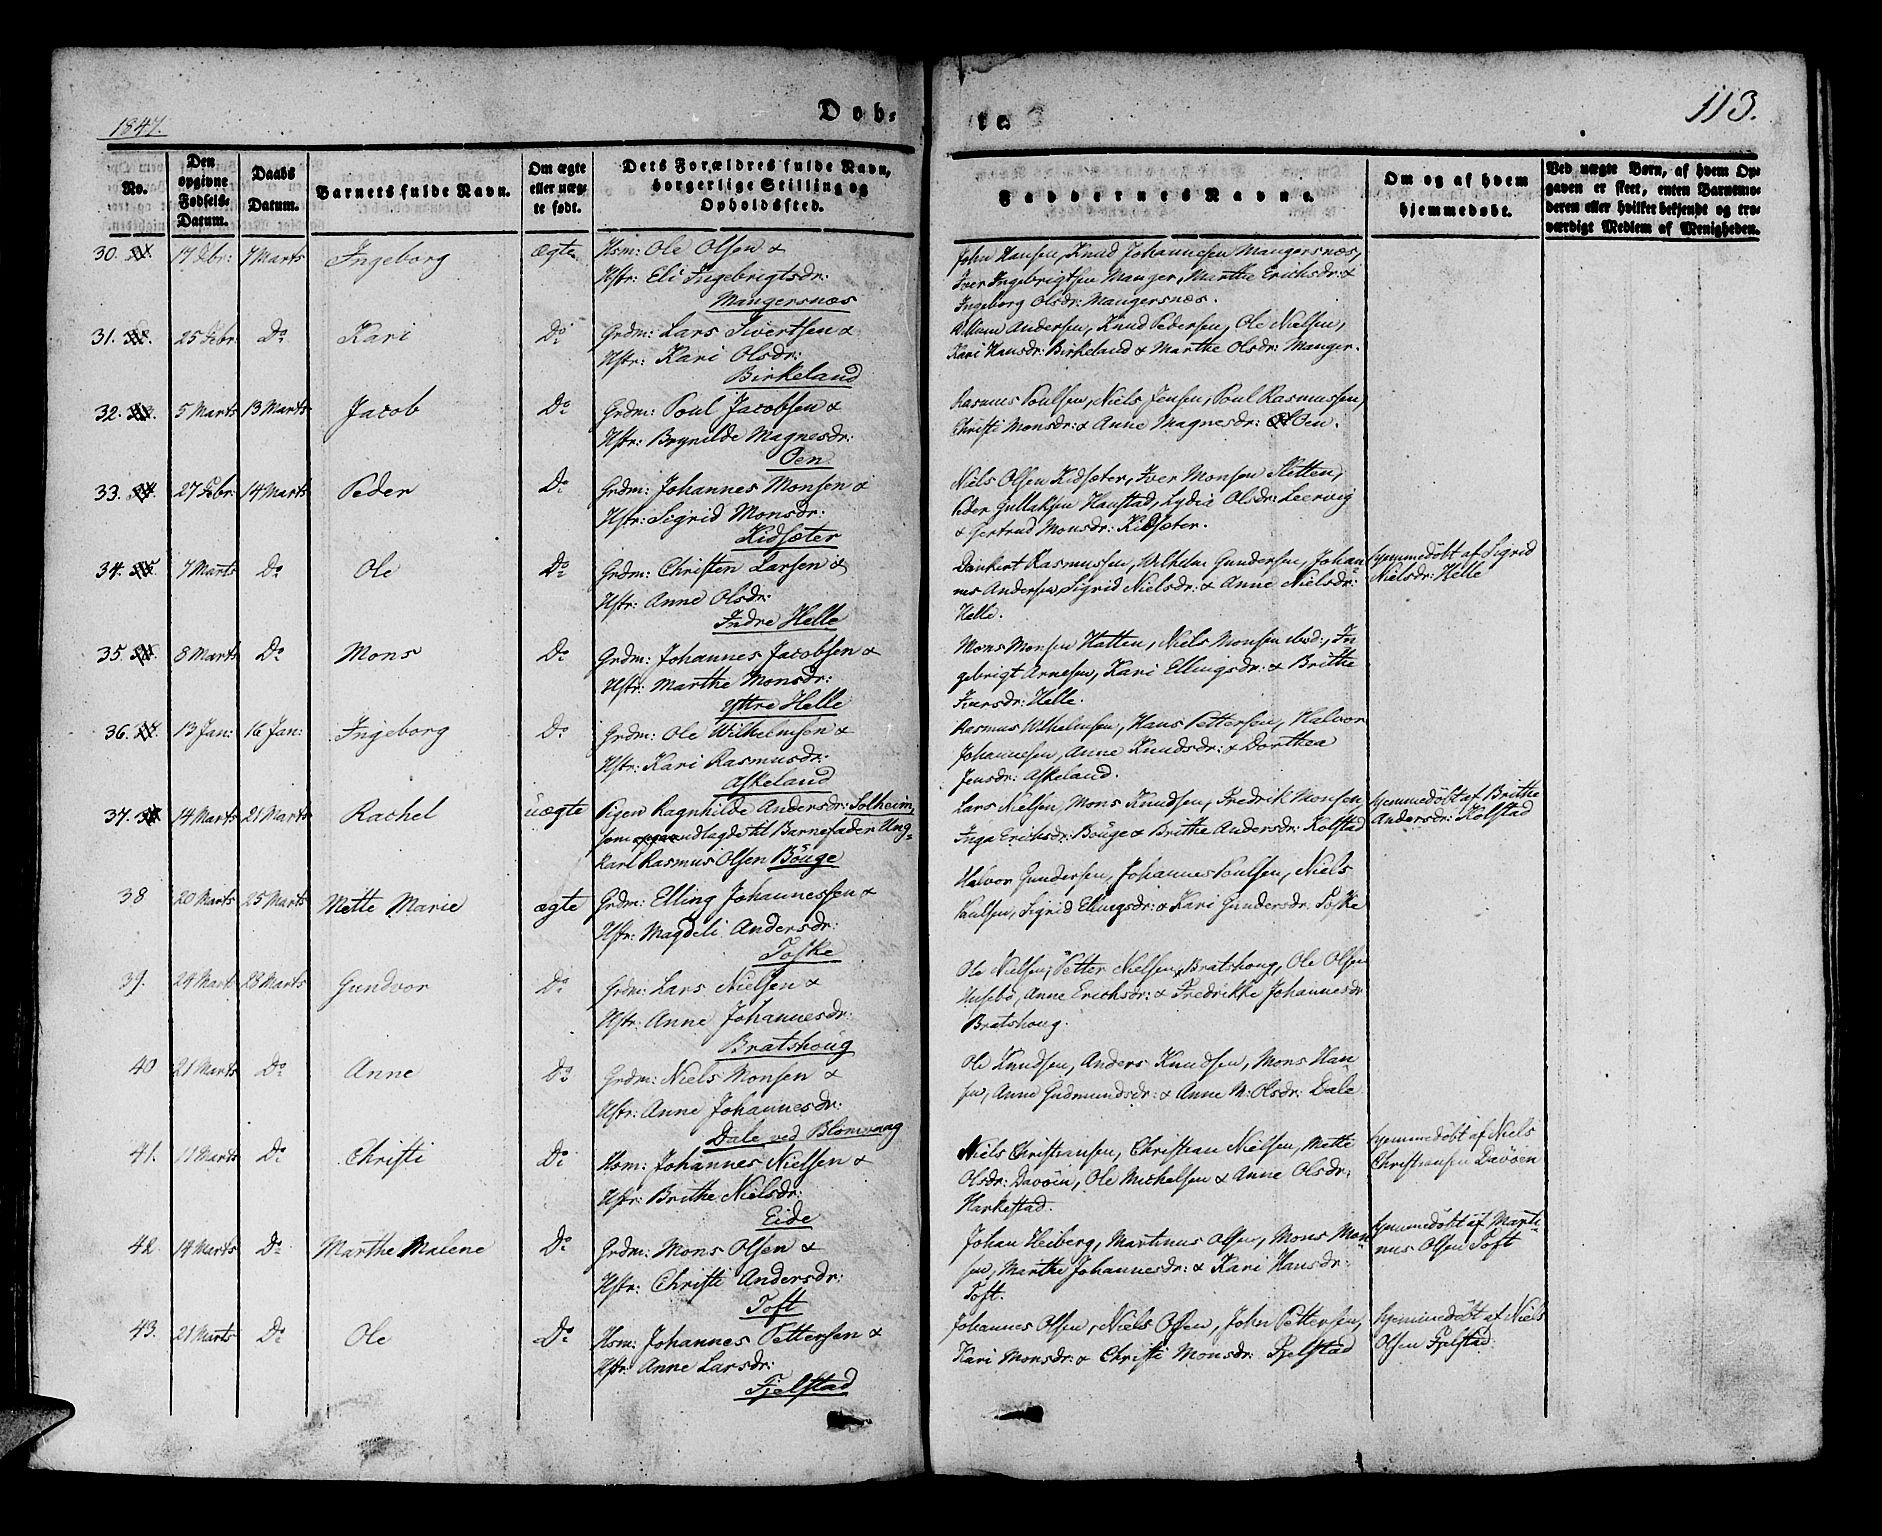 1847.
Døb-
te.
113.
No.
Den opgivne Fødsels-Datum.
Daabs Datum.
Barnets fulde Navn.
Om ægte eller uægte født.
Dets Forældres fulde Navn, borgerlige Stilling og Opholdssted.
Faddernes Navne.
Om og af hvem hjemmedøbt.
Ved uægte Børn, af hvem Opgaven er skeet, enten Barnemoderen eller hvilket bekjendt og troværdigt Medlem af Menigheden.
30. 17 Febr: 7 Marts Ingeborg ægte Hsm: Ole Olsen &
Hstr: Eli Ingebrigtsdr:
Mangersnæs
John Hansen, Knud Johannesen Mangersnæs,
Iver Ingebrigtsen Manger, Marthe Erichsdr: &
Ingeborg Olsdr: Mangersnæs.
31. 25 Febr: Do Kari Do Grdm: Lars Sivertsen &
Hstr: Kari Olsdr:
Birkeland
Willum Andersen, Knud Pedersen, Ole Nielsen,
Kari Hansdr: Birkeland & Marthe Olsdr: Manger.
32. 5 Marts 13 Marts Jacob Do Grdm: Poul Jacobsen &
Hstr: Brynilde Magnesdr:
Øen
Rasmus Poulsen, Niels Jensen, Poul Rasmussen,
Christi Monsdr: & Anne Magnesdr: Øen.
33. 27 Febr: 14 Marts Peder Do Grdm: Johannes Monsen &
Hstr: Sigrid Monsdr:
Kidsæter
Niels Olsen Kidsæter, Iver Monsen Sletten,
Peder Gullaksen Hanstad, Lydia Olsdr: Leervig
& Gertrud Monsdr: Kidsæter.
34. 7 Marts Do Ole Do Grdm: Christen Larsen &
Hstr: Anne Olsdr:
Indre Helle
Dankert Rasmussen, Wilhelm Gundersen, Johan-
nes Andersen, Sigrid Nielsdr: & Anne Nielsdr:
Helle.
Hjemmedøbt af Sigrid
Nielsdr: Helle
35. 8 Marts Do Mons Do Grdm: Johannes Jacobsen &
Hstr: Marthe Monsdr:
Yttre Helle
Mons Monsen Hatten, Niels Monsen ibid:, In
gebrigt Arnesen, Kari Ellingsdr: & Brithe
Iversdr: Helle.
36. 13 Jan: 16 Jan: Ingeborg Do Grdm: Ole Wilhelmsen &
Hstr: Kari Rasmusdr:
Askeland
Rasmus Wilhelmsen, Hans Pettersen, Halvor
Johannesen, Anne Knudsdr: & Dorthea
Jensdr: Askeland.
37. 14 Marts 21 Marts Rachel uægte Pigen Ragnhilde Andersdr: Solheim,
som udlagde til Barnefader Ung-
karl Rasmus Olsen Böuge
Lars Nielsen, Mons Knudsen, Fredrik Monsen
Inga Erichsdr: Böuge & Brithe Andersdr: Kolstad
Hjemmedøbt af Brithe
Andersdr: Kolstad
38 20 Marts 25 Marts Mette Marie ægte Grdm: Elling Johannessen &
Hstr: Magdeli Andersdr:
Toske
Halvor Gundersen, Johannes Poulsen, Niels
Poulsen, Sigrid Ellingsdr: & Kari Gundersdr: Toske
39. 24 Mart: 28 Marts Gundvor Do Grdm: Lars Nielsen &
Hstr: Anne Johannesdr:
Bratshoug
Ole Nielsen, Petter Nielsen, Bratshoug, Ole Olsen
Husebø, Anne Erichsdr: & Fredrikke Johannesdr:
Bratshoug.
40 21 Marts Do Anne Do Grdm: Niels Monsen &
Hstr: Anne Johannesdr:
Dale ved Blomvaag
Ole Knudsen, Anders Knudsen, Mons Han-
sen, Anne Gudmundsdr: & Anne M: Olsdr: Dale
41. 11 Marts Do Christi Do Hsm: Johannes Nielsen &
Hstr: Brithe Nielsdr:
Eide
Niels Christiansen, Christian Nielsen, Mette
Olsdr: Davöen, Ole Michelsen & Anne Olsdr:
Harkestad.
Hjemmedøbt af Niels
Christiansen Davöen
42. 14 Marts Do Marthe Malene Do Grdm: Mons Olsen &
Hstr: Christi Andersdr:
Toft
Johan Heiberg, Martinus Olsen, Mons Mon-
sen, Marthe Johannesdr: & Kari Hansdr:
Toft.
Hjemmedøbt af Marti-
nus Olsen Toft
43. 21 Marts Do Ole Do Hsm: Johannes Pettersen &
Hstr: Anne Larsdr:
Fjelstad
Johannes Olsen, Niels Olsen, John Pettersen,
Kari Monsdr: & Christi Monsdr: Fjelstad
Hjemmedøbt af Niels
Olsen Fjelstad.